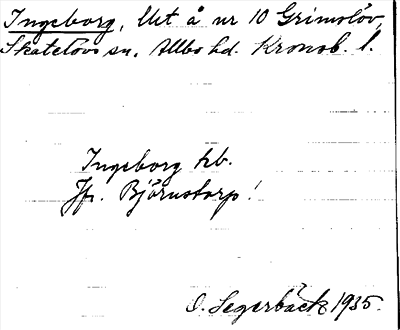 Ingeborg, Utt å nr 10 Grimslöv,
Skatelövs sn. Allbo hd. Kronob. l.
Ingeborg hb.
Jfr. Björnstorp!
O. Segerbäck 1935.